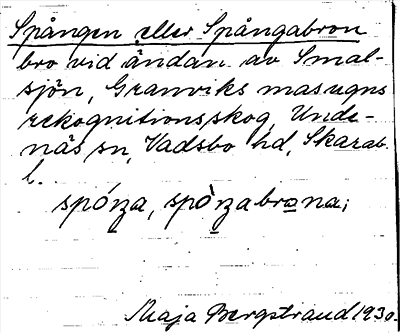 Spången eller Spångabron
bro vid ändan av Smal-
sjön, Granviks masugns
rekognitionsskog, Unde-
näs sn, Vadsbo hd, Skarab.
l.
spóŋa, spòŋabrona;
Maja Bergstrand 1930.